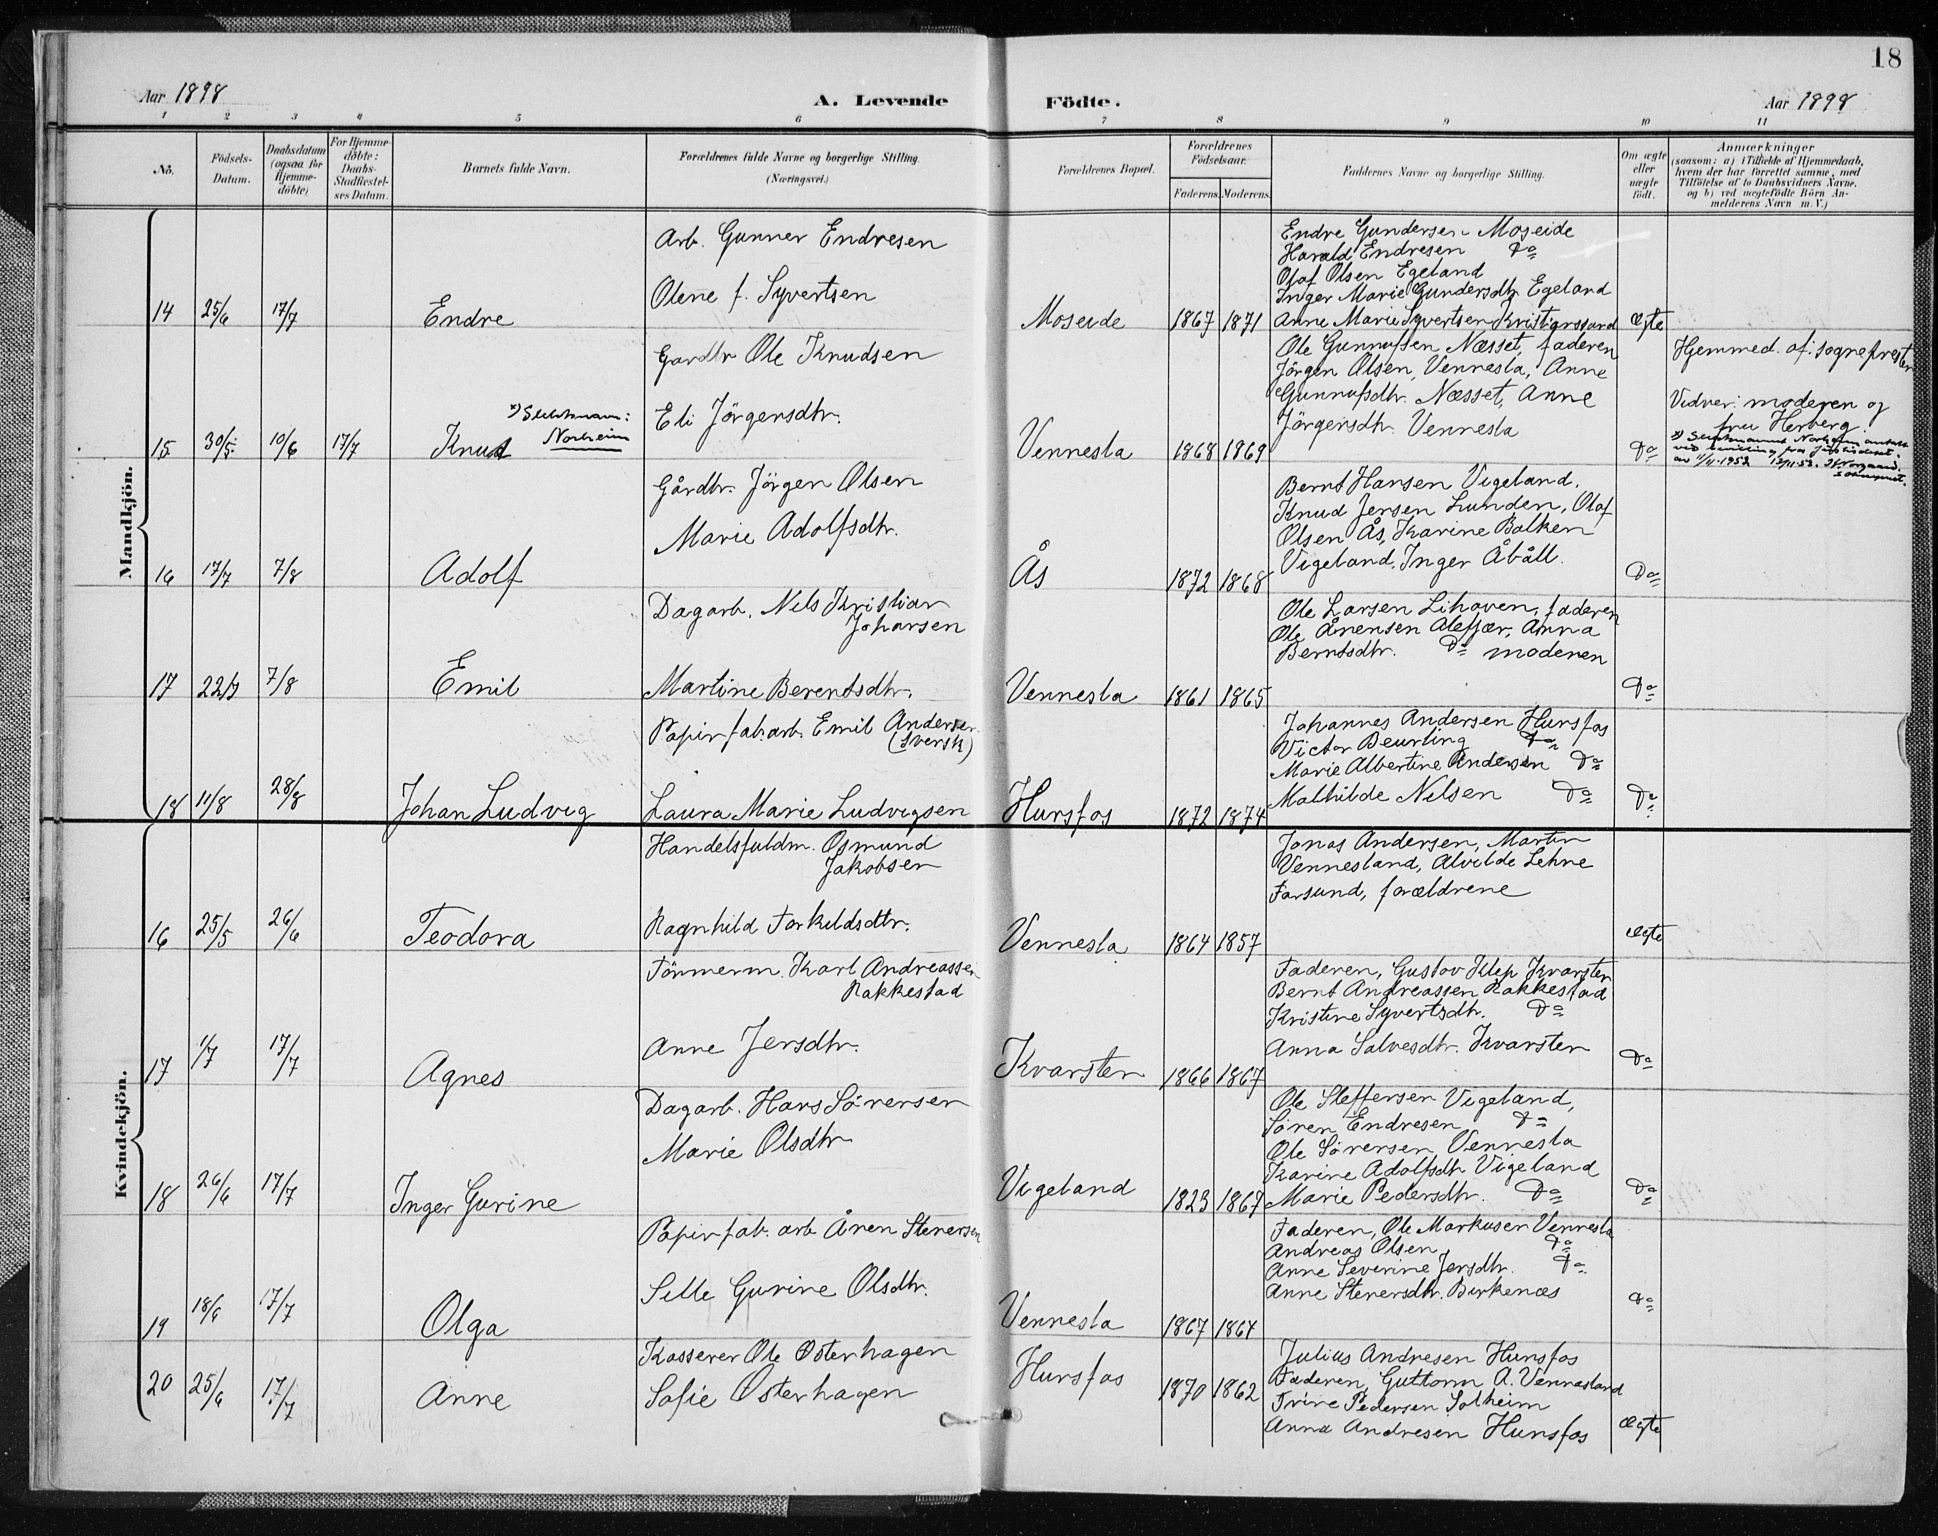 18
Aar 1898
A. Levende Födte.
Aar 1898
1 2 3 4 5 6 7 8 9 10 11
No.
Födsels-
Datum.
Daabsdatum
(ogsaa for
Hjemme-
döbte)
For Hjemme-
döbte:
Daabs-
Stadfæstel-
ses Datum.
Barnets fulde Navn.
Forældrenes fulde Navne og borgerlige Stilling.
(Næringsvei.)
Forældrenes Bopæl.
Forældrenes
Födselsaar.
Faderens. Moderens.
Faddernes Navne og borgerlige Stilling.
Om ægte
eller
uægte
født.
Anmærkninger
(saasom: a) i Tilfælde af Hjemmedaab,
hvem der har forrettet samme, med
Tilföielse af to Daabsvidners Navne.
og b) ved uægtefödte Börn An-
melderens Navn m. V.)
Mandkjön.
Arb. Gunner Endresen
Olene f. Syvertsen
14 25/6 17/7 Endre
Moseide 1867 1871
Endre Gundersen Moseide
Harald Endresen Do
Olaf Olsen Egeland
Inger Marie Gundersdtr Egeland
Anne Marie Syvertsen Kristianssand
ægte
Gardbr Ole Knudsen
Eli Jörgersdtr.
15 30/5 10/6 17/7 Knud
x) Slektsnavn:
Norheim
Vennesla 1868 1869
Ole Gunnufsen Næsset, faderen
Jörgen Olsen, Vennesla, Anne
Gunnufsdtr. Næsset, Anne
Jörgersdtr. Vennesla
Do
Hjemmed. af sogneprester
Vidner: moderen og
fru Herberg.
x) Slektsnavnet Norheim antatt
ved bevilling fra Justisdeset.
av 11/11-1952
Gårdbr. Jörgen Olsen
Marie Adolfsdtr.
16 17/7 7/8 Adolf
Ås 1872 1868
Bernt Hansen Vigeland.
Knud Jensen Lunden, Olaf
Olsen Ås, Karine Balken
Vigeland, Inger Åbåll.
Do
Dagarb. Nels Kristian
Johansen
Martine Berentsdtr.
17 22/7 7/8 Emil
Vennesla 1861 1865
Ole Larsen Lihaven, faderen
Ole Ånensen Alefjær, Anna
Berntsdtr. Do moderen
Do
Papirfab.arb. Emil Andersen
(svensk)
Laura Marie Ludvigsen
18 11/8 28/8 Johan Ludvig
Hunsfos 1872 1874
Johannes Andersen Hunsfos
Victor Beurling Do
Marie Albertine Andersen Do
Mathilde Nilsen Do
Do
Kvindekjön.
Handelsfuldm. Osmund
Jakobsen
Ragnhild Torkildsdtr.
16 25/5 26/6 Teodora
Vennesla 1864 1857
Jonas Andersen, Martin
Vennesland, Alvilde Lehne
Farsund, forældrene
ægte
Tönmerm. Karl Andreassen
Rakkestad
Anne Jensdtr.
17 1/7 17/7 Agnes
Kvarsten 1866 1867
Faderen, Gustav Klep Kvarsten
Bernt Andreassen Rakkestad
Kristine Syvertsdtr. Do
Anna Salvesdtr. Kvarsten
Do
Dagarb. Hans Sörensen
Marie Olsdtr
18 26/6 17/7 Inger Gurine
Vigeland 1823 1867
Ole Steffensen Vigeland,
Sören Endresen Do
Ole Sörensen Vennesla
Karine Adolfsdtr Vigeland
Marie Pedersdtr. Do
Do
Papirfab. arb Ånen Stenersen
Sille Gurine Olsdtr.
19 18/6 17/7 Olga
Vennesla 1867 1864
Faderen, Ole Markusen Vennesla
Andreas Olsen Do
Anne Severine Jensdtr. Do
Anne Stenersdtr. Birkenæs
Do
Kasserer Ole Osterhagen
Sofie Osterhagen
20 25/6 17/7 Anne
Hunsfos 1870 1862
Julius Andresen Hunsfos
Faderen, Guttorm A. Vennesland
Trine Pedersen Solheim
Anna Andresen Hunsfos
ægte